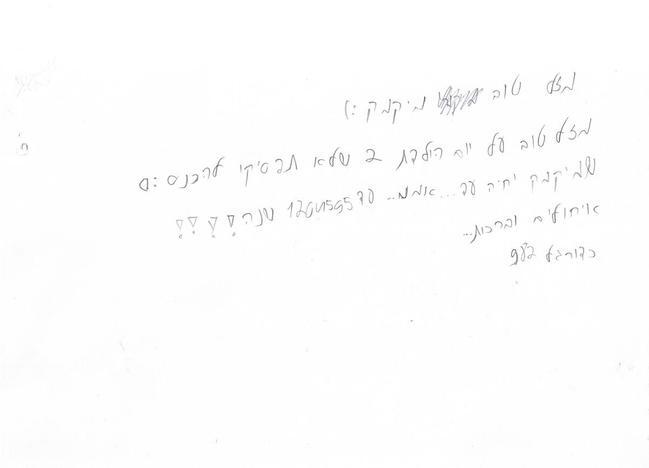 מזל טוב מיקמק :)
מזל טוב על יום הולדת 2 שלא תפסיקו להכנס :D
שמיקמק יחיה עד....אממ... עד שנה!!!!
איחולים וברכות...
כדורגל